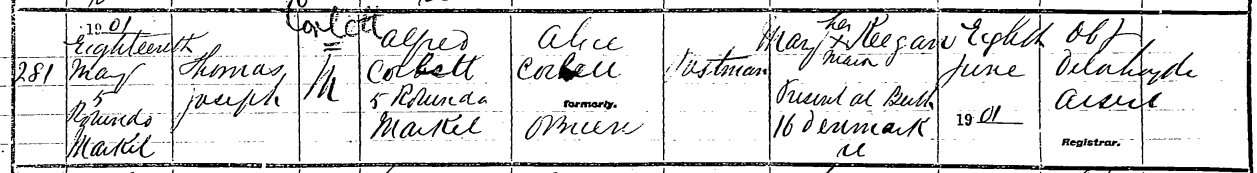 281
1901
Eighteenth
May
5
Rotundo
Market
Thomas
Joseph
Corbett
M
Alfred
Corbett
5 Rotundo
Market
Alice
Corbett
formerly.
O'Brien
Postman
Mary her x mark Keegan
Present at Birth
16 Denmark
Eighth
June
1901
Delahoyde
Assist
Registrar.